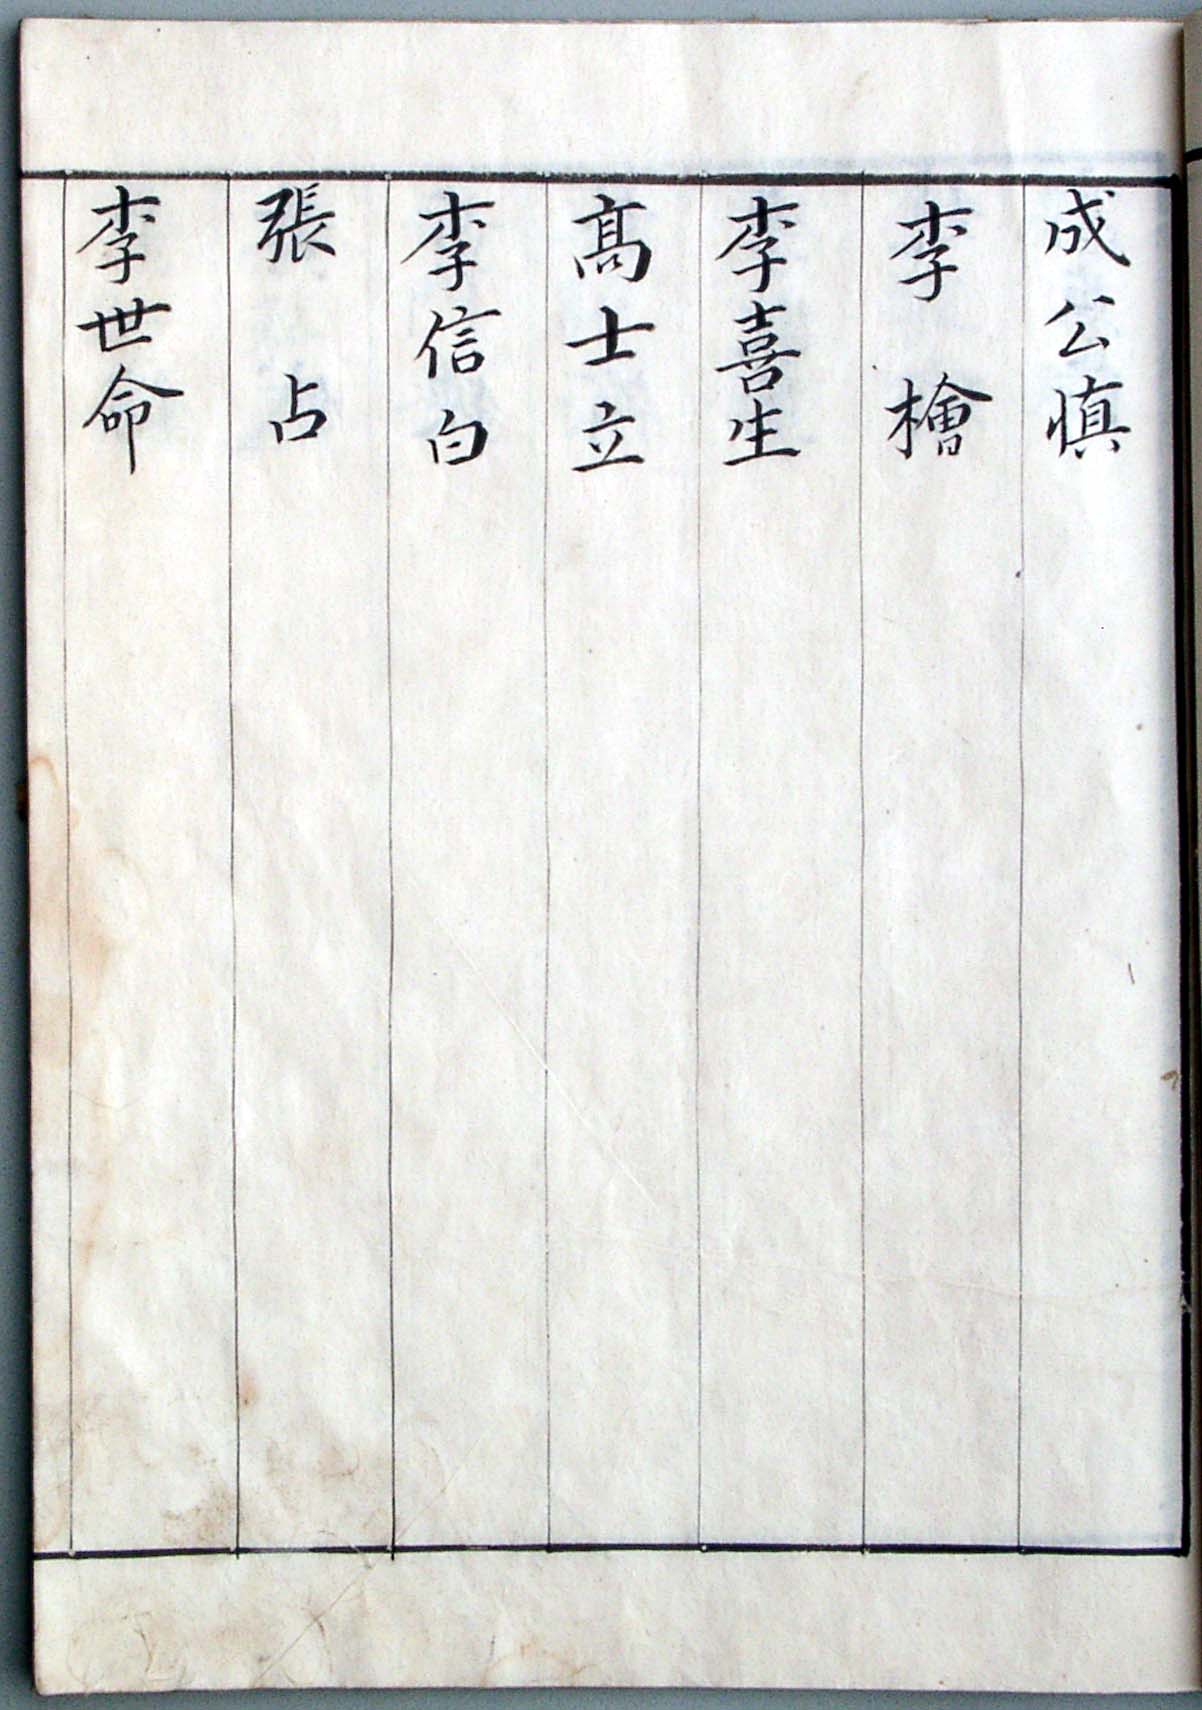 成公慎
李檜
李喜生
髙士立
李信白
張占
李世命